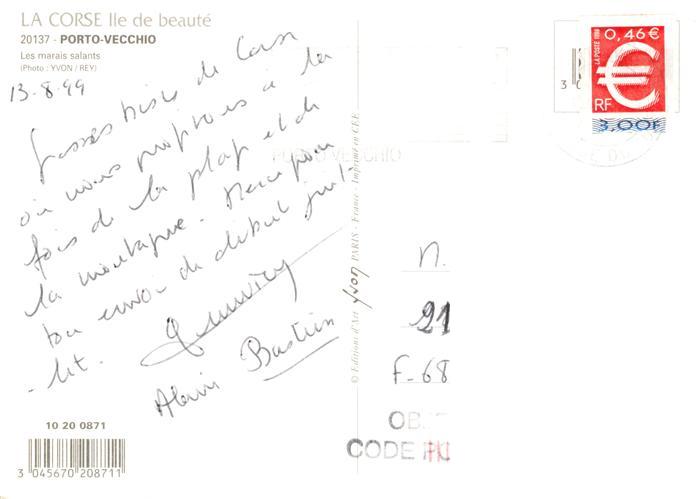 LA CORSE Ile de beauté
20137 - PORTO-VECCHIO
Les marais salants
(Photo : YVON / REY)
13-8-99
Grosses bises de Corse
où nous profitons à la
fois de la plage et de
la montagne. Merci pour
ton envoi de début juil-
-let.
Alain Bastien
10 20 0871
3 045670 208711
© Editions d'Art Yvon PARIS - France - Imprimé en CEE
PORTO VECCHIO
LA POSTE 1999
0,46€
€
RF
3,00F
n.
21
F-68
OB
CODE